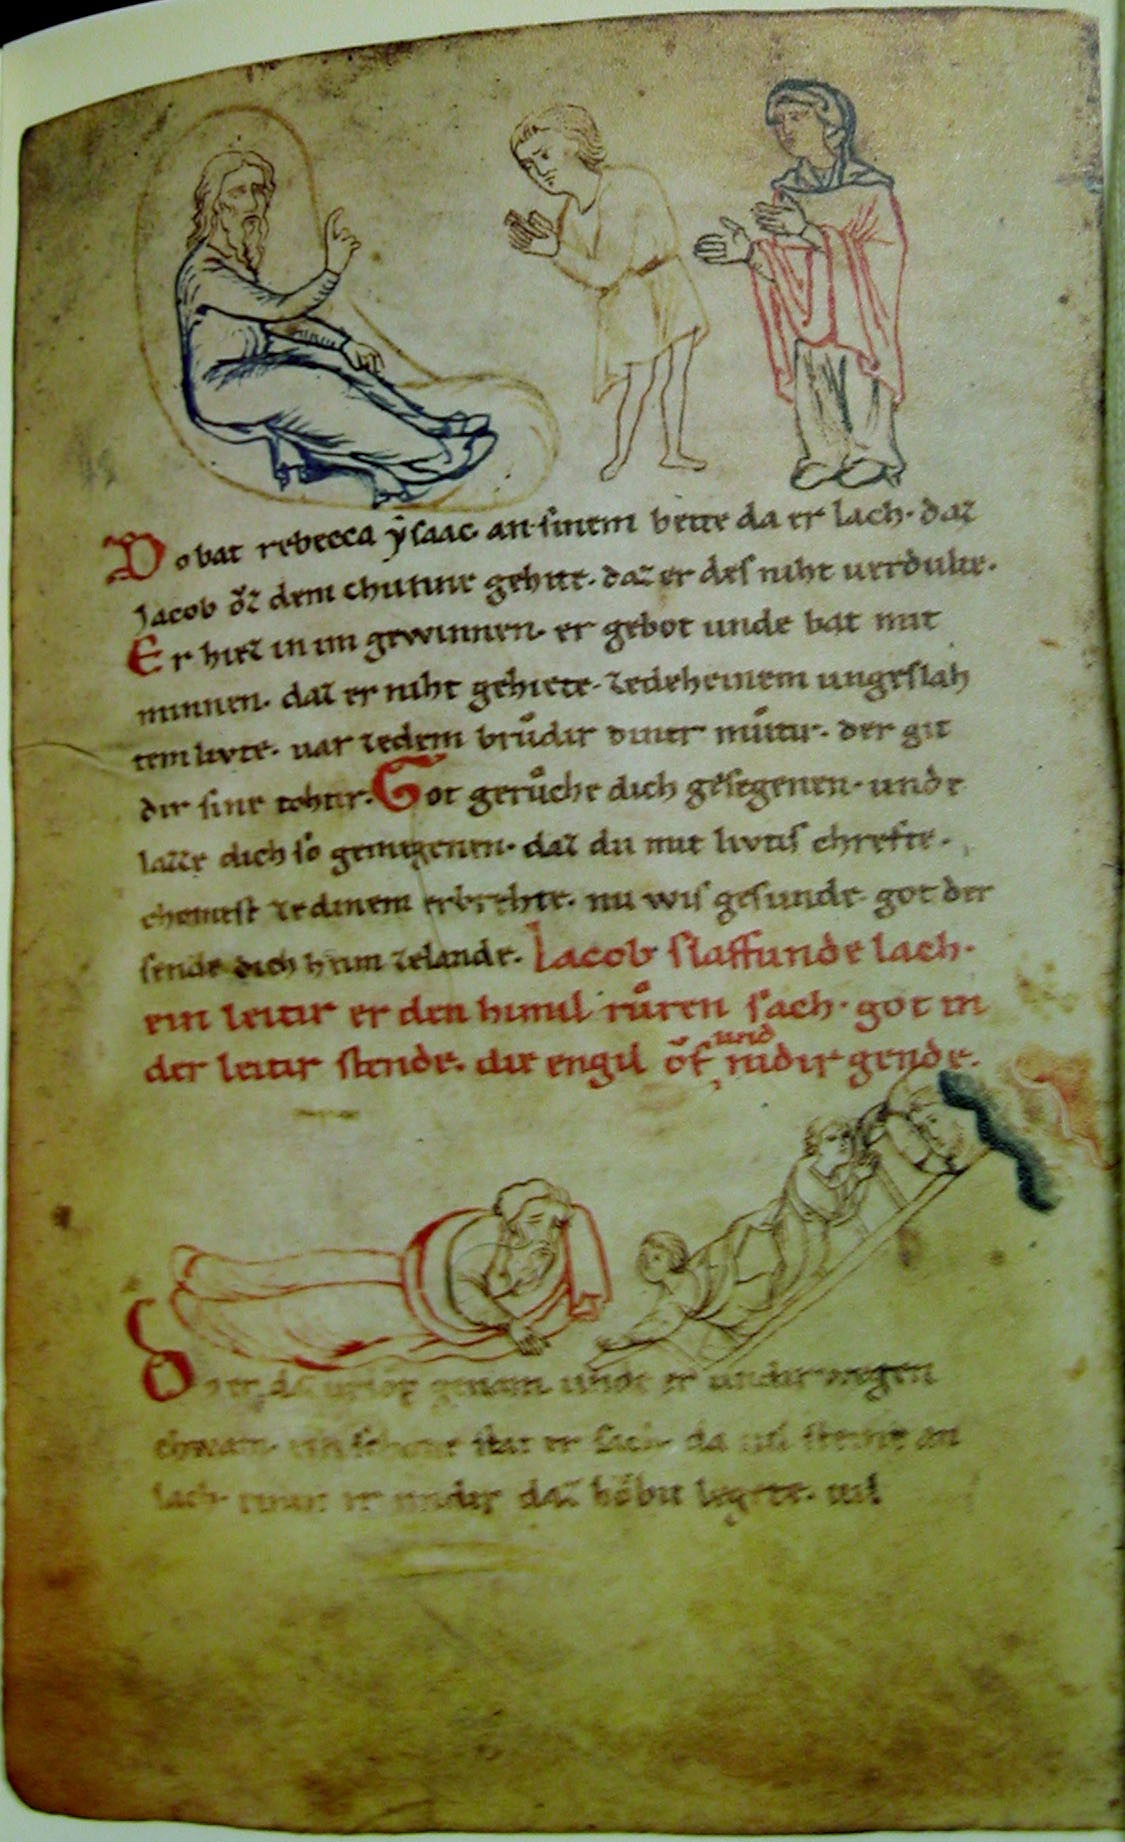 Do bat rebecca ẏsaac· an sinem bette da er lach· daz
Jacob ǒz dem chunne gehite· daz er des niht uerdulte·
Er hiez in im gewinnen· er gebot unde bat mit
minnen· daz er niht gehiete· zedeheinem ungeslah
tem livte· uar zedem brůdir diner můtir· der git
dir sine tohtir· Got gerůche dich gesegenen· unde
lazze dich so gemegenen· daz du mit livtis chrefte·
chomest ze dinem erbrehte· nu wis gesunde· got der
sende dich heim zelande· Jacob slaffunde lach·
ein leitir er den himil růren sach· got in
der leitir stende· die engil ǒf und nidir gende·
Do er da urlǒp genam unde er underwegen
chwam· ein schone stat er sach· da uil steine an
lach· einen er under daz hǒbit legete· uil